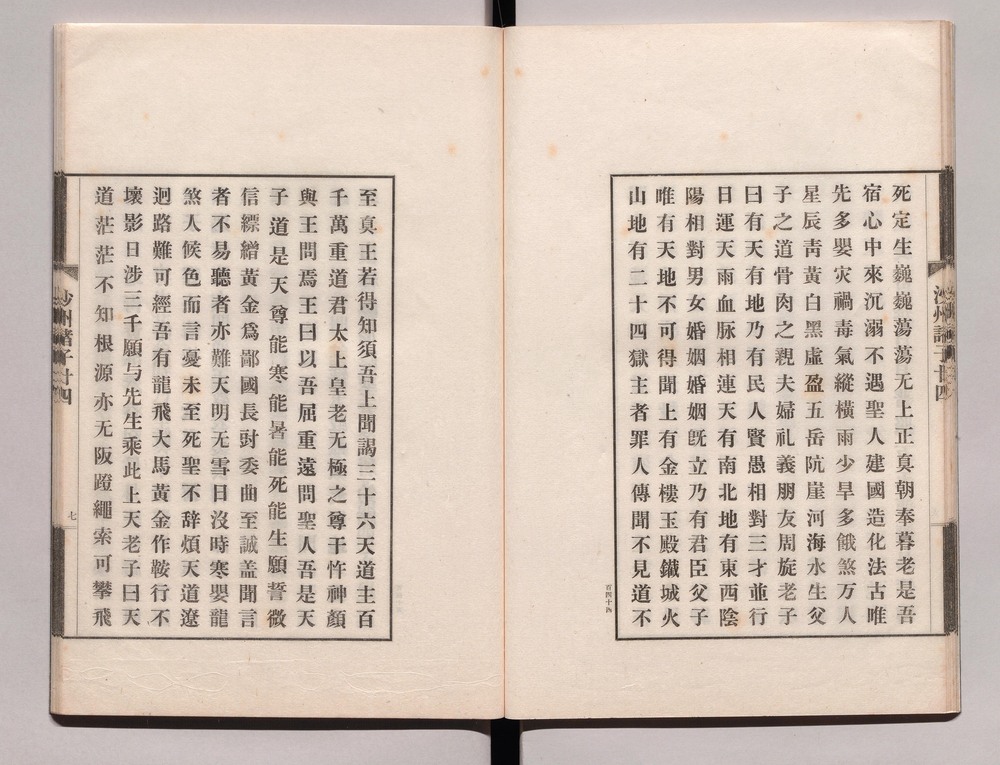 死定生巍巍蕩蕩无上正真朝奉暮老是吾
宿心中來沉溺不遇聖人建國造化法古唯
先多嬰灾禍毒氣縱橫雨少旱多餓煞万人
星辰青黃白黑虛盈五岳阬崖河海水生父
子之道骨肉之親夫婦礼義朋友周旋老子
曰有天有地乃有民人賢愚相對三才並行
日運天雨血脈相連天有南北地有東西陰
陽相對男女婚姻婚姻既立乃有君臣父子
唯有天地不可得聞上有金樓玉殿鐵城火
山地有二十四獄主者罪人傳聞不見道不
百四十四
至真王若得知須吾上聞謁三十六天道主百
千萬重道君太上皇老无極之尊干忤神顏
與王問焉王曰以吾屈重遠問聖人吾是天
子道是天尊能寒能暑能死能生願誓微
信縹繒黃金為鄙國長跪委曲至誠盖聞言
者不易聽者亦難天明无雪日沒時寒嬰龍
煞人候色而言憂未至死聖不辞煩天道遼
迥路難可經吾有龍飛大馬黃金作鞍行不
壞影日涉三千願与先生乘此上天老子曰天
道茫茫不知根源亦无阪蹬繩索可攀飛
沙州諸子廿四
七